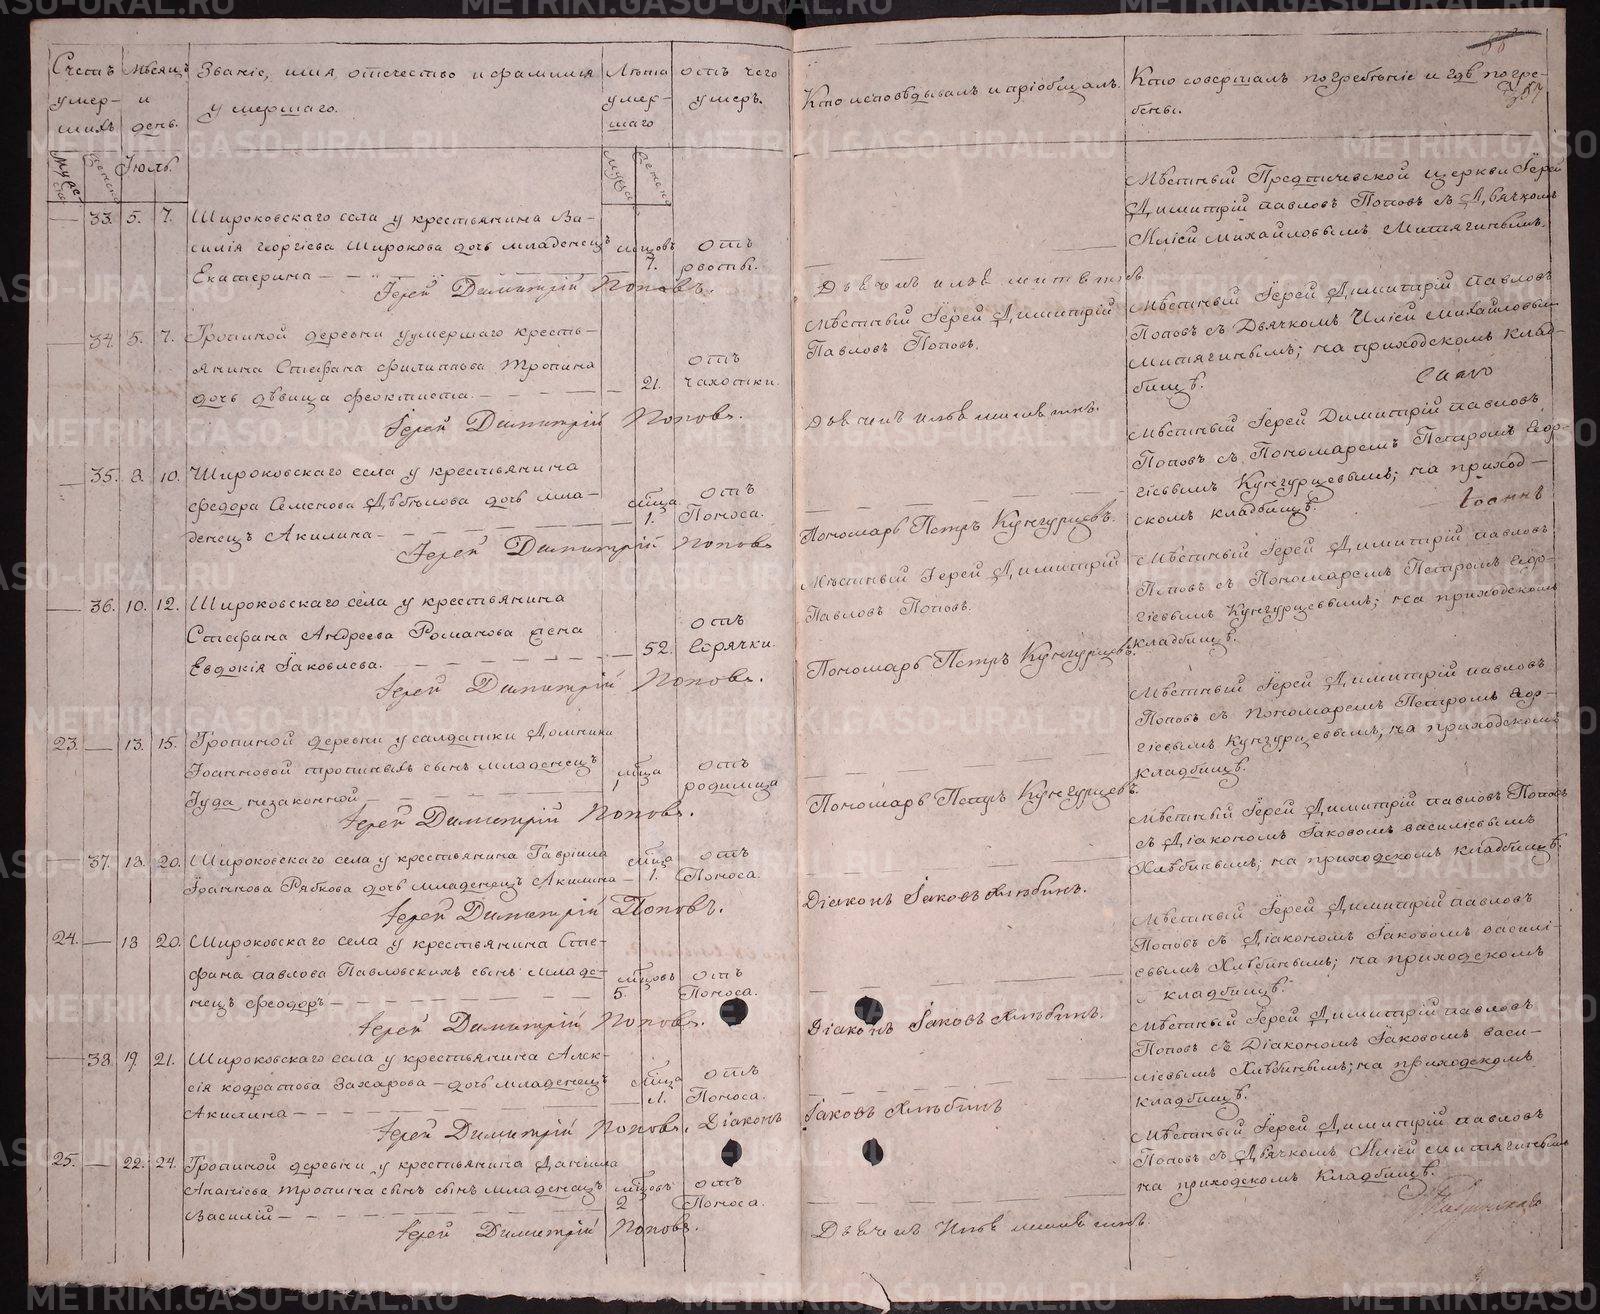 Счетъ умер-шихъ
Мѣсяцъ и день.
Званіе, имя, отечество и фамилия умершаго.
Лѣта умер-шаго
отъ чего умеръ.
Кто исповѣдывалъ и пріобщалъ.
Кто совершалъ погребеніе и гдѣ погре-
бены.
Іюль.
33. 5. 7. Широковскаго села у крестьянина Ва-
силія георгіева Широкова дочь младенецъ мѣцовъ 7. отъ рвоты.
Екатерина
Іерей Димитрій Поповъ.
34. 5. 7. Тропиной деревни у умершаго кресть-
янина Стефана филиппова Тропина 21. отъ чахотки.
дочь дѣвица феоктиста.
Іерей Димитрій Поповъ.
35. 8. 10. Широковскаго села у крестьянина
федора Семенова дочь мла- мѣца 1. отъ Поноса.
денецъ Акилина
Іерей Димитрій Поповъ
36. 10. 12. Широковскаго села у крестьянина
Стефана Андреева Романова жена 52. отъ горячки.
Евдокія Іаковлева.
Іерей Димитрій Поповъ.
23. 13. 15. Тропиной деревни у салдатки Домники
Іоанновой тропиныхъ сынъ младенецъ мѣца 1 отъ родимца
Іуда незаконной
Іерей Димитрій Поповъ.
37. 18. 20. Широковскаго села у крестьянина Гавріила мѣца 1. отъ Поноса.
Іоаннова Рябкова дочь младенецъ Акилина
Іерей Димитрій Поповъ.
24. 18 20. Широковскаго села у крестьянина Сте-
фана павлова Павловскихъ сынъ младе- мѣцовъ 5. отъ Поноса.
нецъ феодоръ
Іерей Димитрій Поповъ.
38. 19. 21. Широковскаго села у крестьянина Алек-
сія кодратова Захарова дочь младенецъ мѣца 1. отъ Поноса.
Акилина
Іерей Димитрій Поповъ. Діаконъ
25. 22. 24. Тропиной деревни у крестьянина Даніила
Ананіева тропина сынъ сынъ младенецъ мѣцовъ 2 отъ Поноса.
Василій
Іерей Димитрій Поповъ.
Мѣстный Іерей Димитрій
Павловъ Поповъ.
Пономарь Петръ Кунгурцевъ.
Мѣстный Іерей Димитрій
Павловъ Поповъ.
Пономарь Петръ Кунгурцевъ.
Пономарь Петръ Кунгурцевъ.
Діаконъ Іаковъ Хлѣбинъ.
Діаконъ Іаковъ Хлѣбинъ.
Іаковъ Хлѣбинъ
Мѣстный Предтичевской церкви Іерей
Димитрій павловъ Поповъ съ Дьячкомъ
Иліей михайловымъ Митягинымъ.
Мѣстный Іерей Димитрій павловъ
Поповъ съ Дьячкомъ Иліей михайловымъ
митягинымъ; на приходскомъ клад-
бищѣ.
Мѣстный Іерей Димитрій павловъ
Поповъ съ Пономаремъ Петромъ геор-
гіевымъ Кунгурцевымъ; на приход-
скомъ кладбищѣ.
Мѣстный Іерей Димитрій павловъ
Поповъ съ Пономаремъ Петромъ геор-
гіевымъ Кунгурцевымъ; на приходскомъ
кладбищѣ.
Мѣстный Іерей Димитрій павловъ
Поповъ съ пономаремъ Петромъ геор-
гіевымъ Кунгурцевымъ, на приходскомъ
кладбищѣ.
Мѣстный Іерей Димитрій павловъ Поповъ
съ Діакономъ Іаковомъ василіевымъ
Хлѣбинымъ; на приходскомъ кладбищѣ.
Мѣстный Іерей Димитрій павловъ
Поповъ съ Діакономъ Іаковомъ василі-
евымъ Хлѣбинымъ; на приходскомъ
кладбищѣ.
Мѣстный Іерей Димитрій павловъ
Поповъ съ Діакономъ Іаковомъ васи-
ліевымъ Хлѣбинымъ; на приходскомъ
кладбищѣ.
Мѣстный Іерей Димитрій павловъ
Поповъ съ Дьячкомъ Иліей митягинымъ
на приходскомъ Кладбищѣ.
METRIKI.GASO-URAL.RU